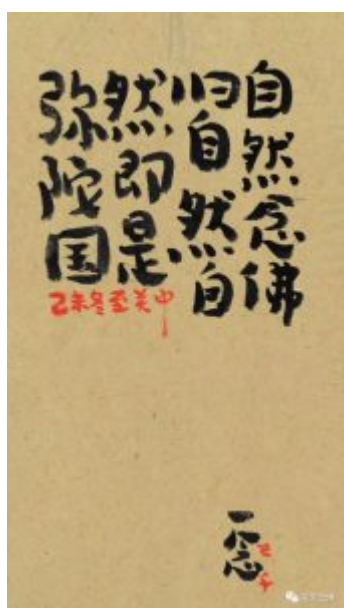 自然念佛
归自然自
然即是
弥陀国
乙未冬至
一念